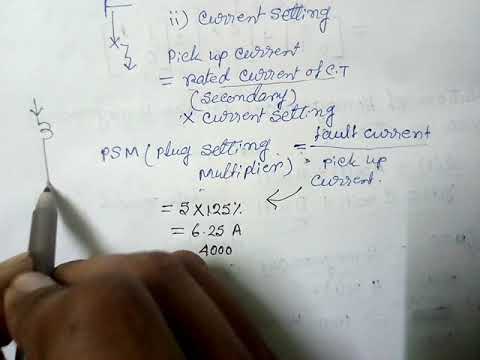 ii) Current Setting
Pick up current
= rated current of C.T
(Secondary)
x current setting
PSM (Plug Setting Multiplier) = fault current
Pick up
current.
= 5 X 125%
= 6.25 A
4000